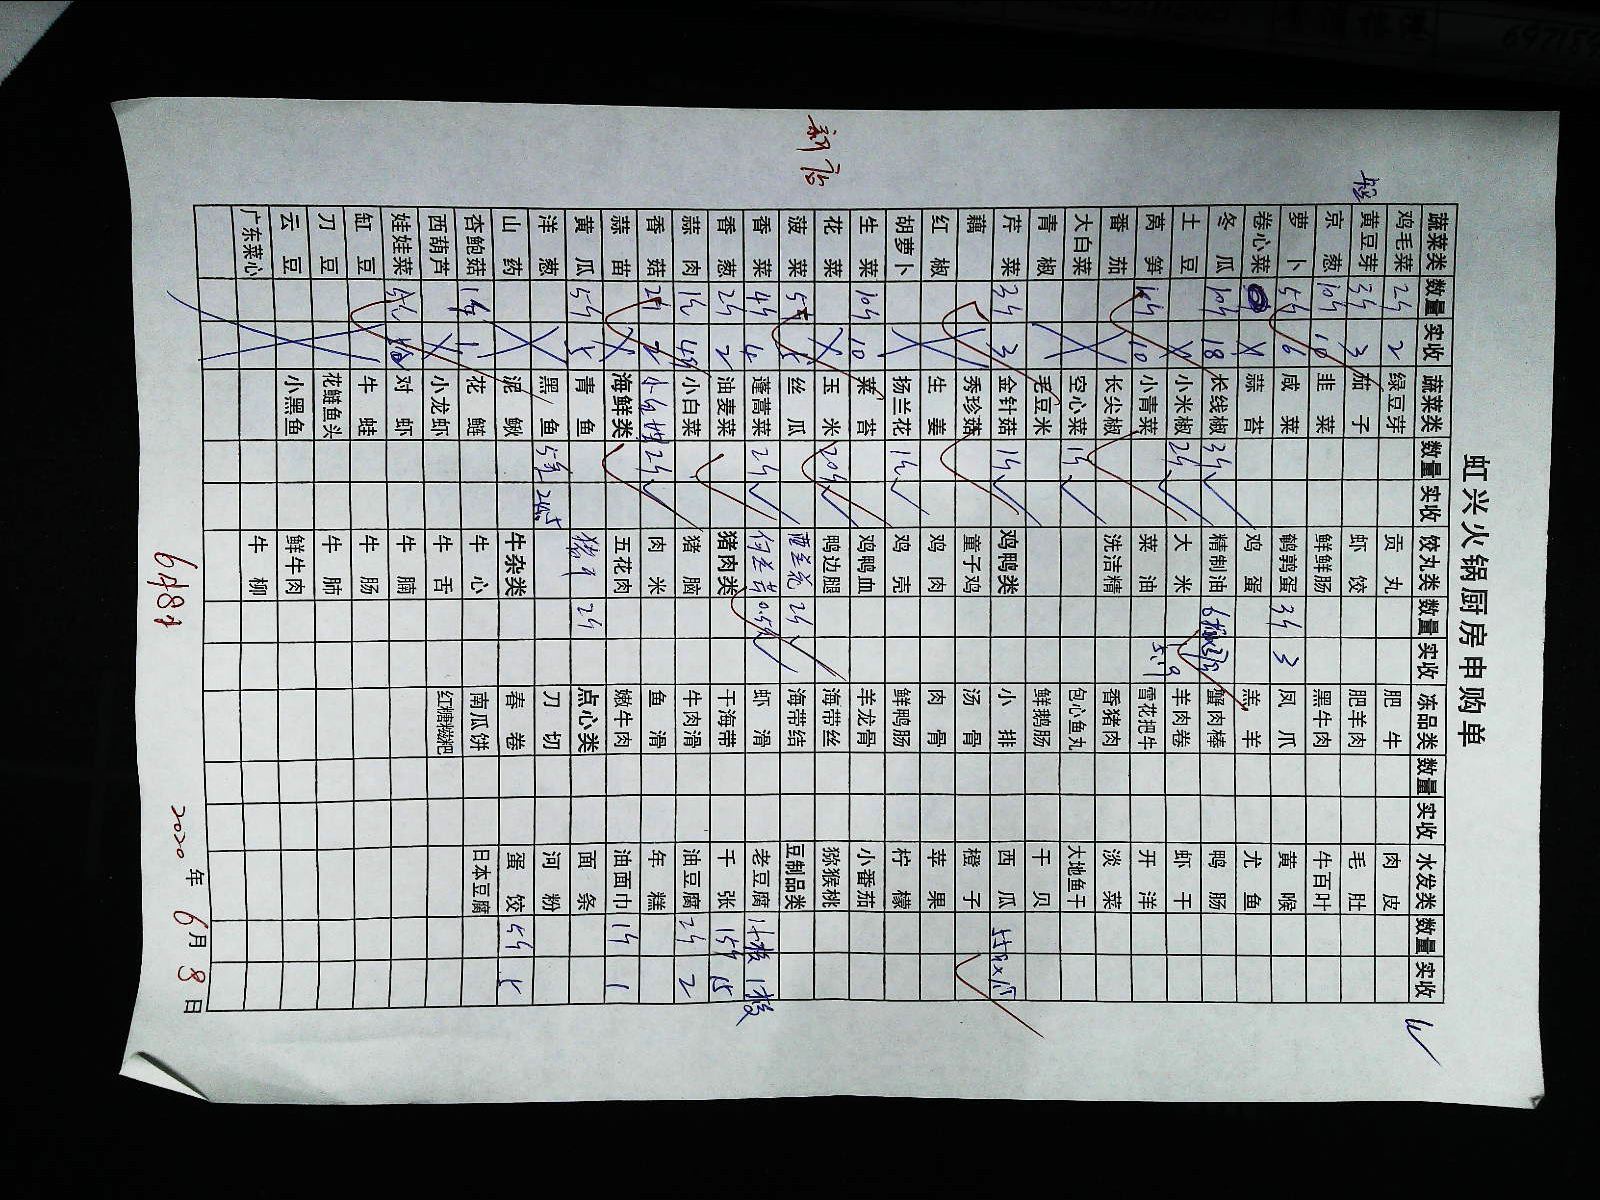 虹兴火锅厨房申购单
蔬菜类 数量 实收 蔬菜类 数量 实收 饺丸类 数量 实收 冻品类 数量 实收 水发类 数量 实收
鸡毛菜 2斤 2 绿豆芽 贡丸 肥牛 肉皮
黄豆芽 3斤 3 茄子 虾饺 肥羊肉 毛肚
京葱 10斤 10 韭菜 鲜鲜肠 黑牛肉 牛百叶
萝卜 5斤 6 咸菜 鹌鹑蛋 3斤 3 凤爪 黄喉
卷心菜 蒜苔 鸡蛋 羔羊 尤鱼
冬瓜 10斤 18 长线椒 3斤 精制油 蟹肉棒 鸭肠
土豆 小米椒 2斤 大米 羊肉卷 虾干
莴笋 10斤 10 小青菜 菜油 雪花把牛 开洋
番茄 长尖椒 洗洁精 香猪肉 淡菜
大白菜 空心菜 1斤 包心鱼丸 大地鱼干
青椒 毛豆米 鲜鹅肠 干贝
芹菜 3斤 3 金针菇 1斤 鸡鸭类 小排 西瓜
藕 秀珍菇 童子鸡 汤骨 橙子
红椒 生姜 鸡肉 肉骨 苹果
胡萝卜 扬兰花 1斤 鸡壳 鲜鸭肠 柠檬
生菜 10斤 10 菜苔 鸡鸭血 羊龙骨 小番茄
花菜 玉米 20斤 鸭边腿 海带丝 猕猴桃
新店
菠菜 5斤 5 丝瓜 西兰花 2斤 海带结 豆制品类
香菜 4斤 4 蓬蒿菜 2斤 0.5斤 虾滑 老豆腐 1板 1板
香葱 2斤 2 油麦菜 猪肉类 干海带 千张 15斤 15
蒜肉 1斤 小白菜 猪脑 牛肉滑 油豆腐 2斤 2
香菇 2斤 2 2斤 肉米 鱼滑 年糕
蒜苗 海鲜类 五花肉 嫩牛肉 油面巾 1斤 1
黄瓜 5斤 5 青鱼 2斤 点心类 面条
洋葱 黑鱼 5条 刀切 河粉
山药 泥鳅 牛杂类 春卷 蛋饺 5斤 5
杏鲍菇 1斤 1 花鲢 牛心 南瓜饼 日本豆腐
西葫芦 小龙虾 牛舌 红糖糍粑
娃娃菜 对虾 牛腩
缸豆 牛蛙 牛肠
刀豆 花鲢鱼头 牛肺
云豆 小黑鱼 鲜牛肉
广东菜心 牛柳
2020年6月8日